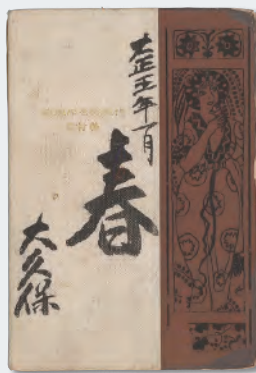 大正五年一月
春
大久保